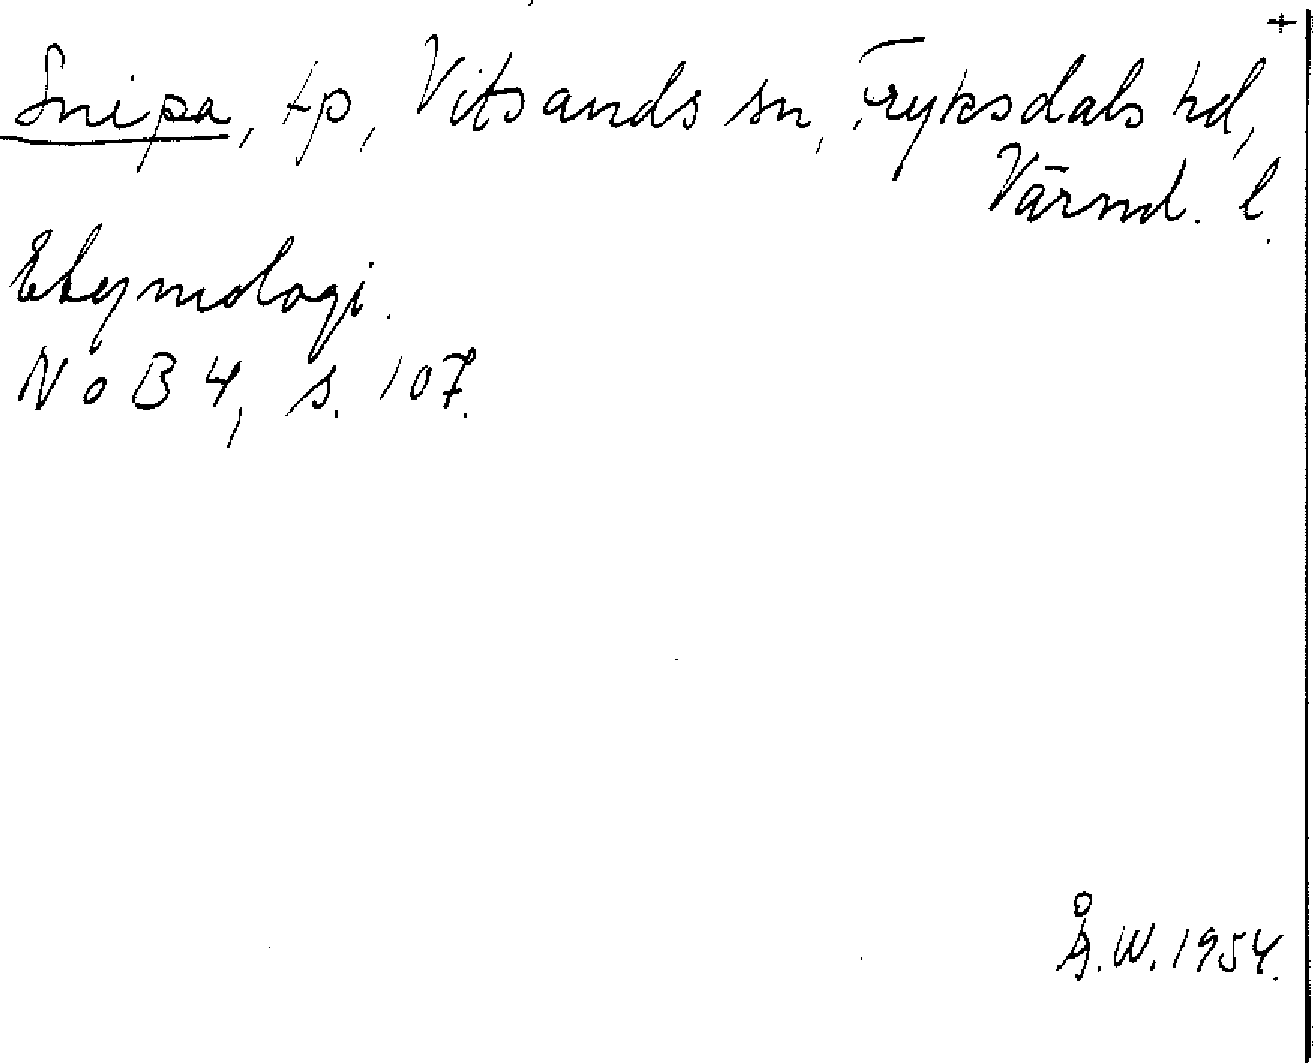 +
Snipa, tp, Vitsands sn, Fryksdals hd,
Värml. l.
Etymologi.
NoB 4, s. 107.
Å.W. 1954.